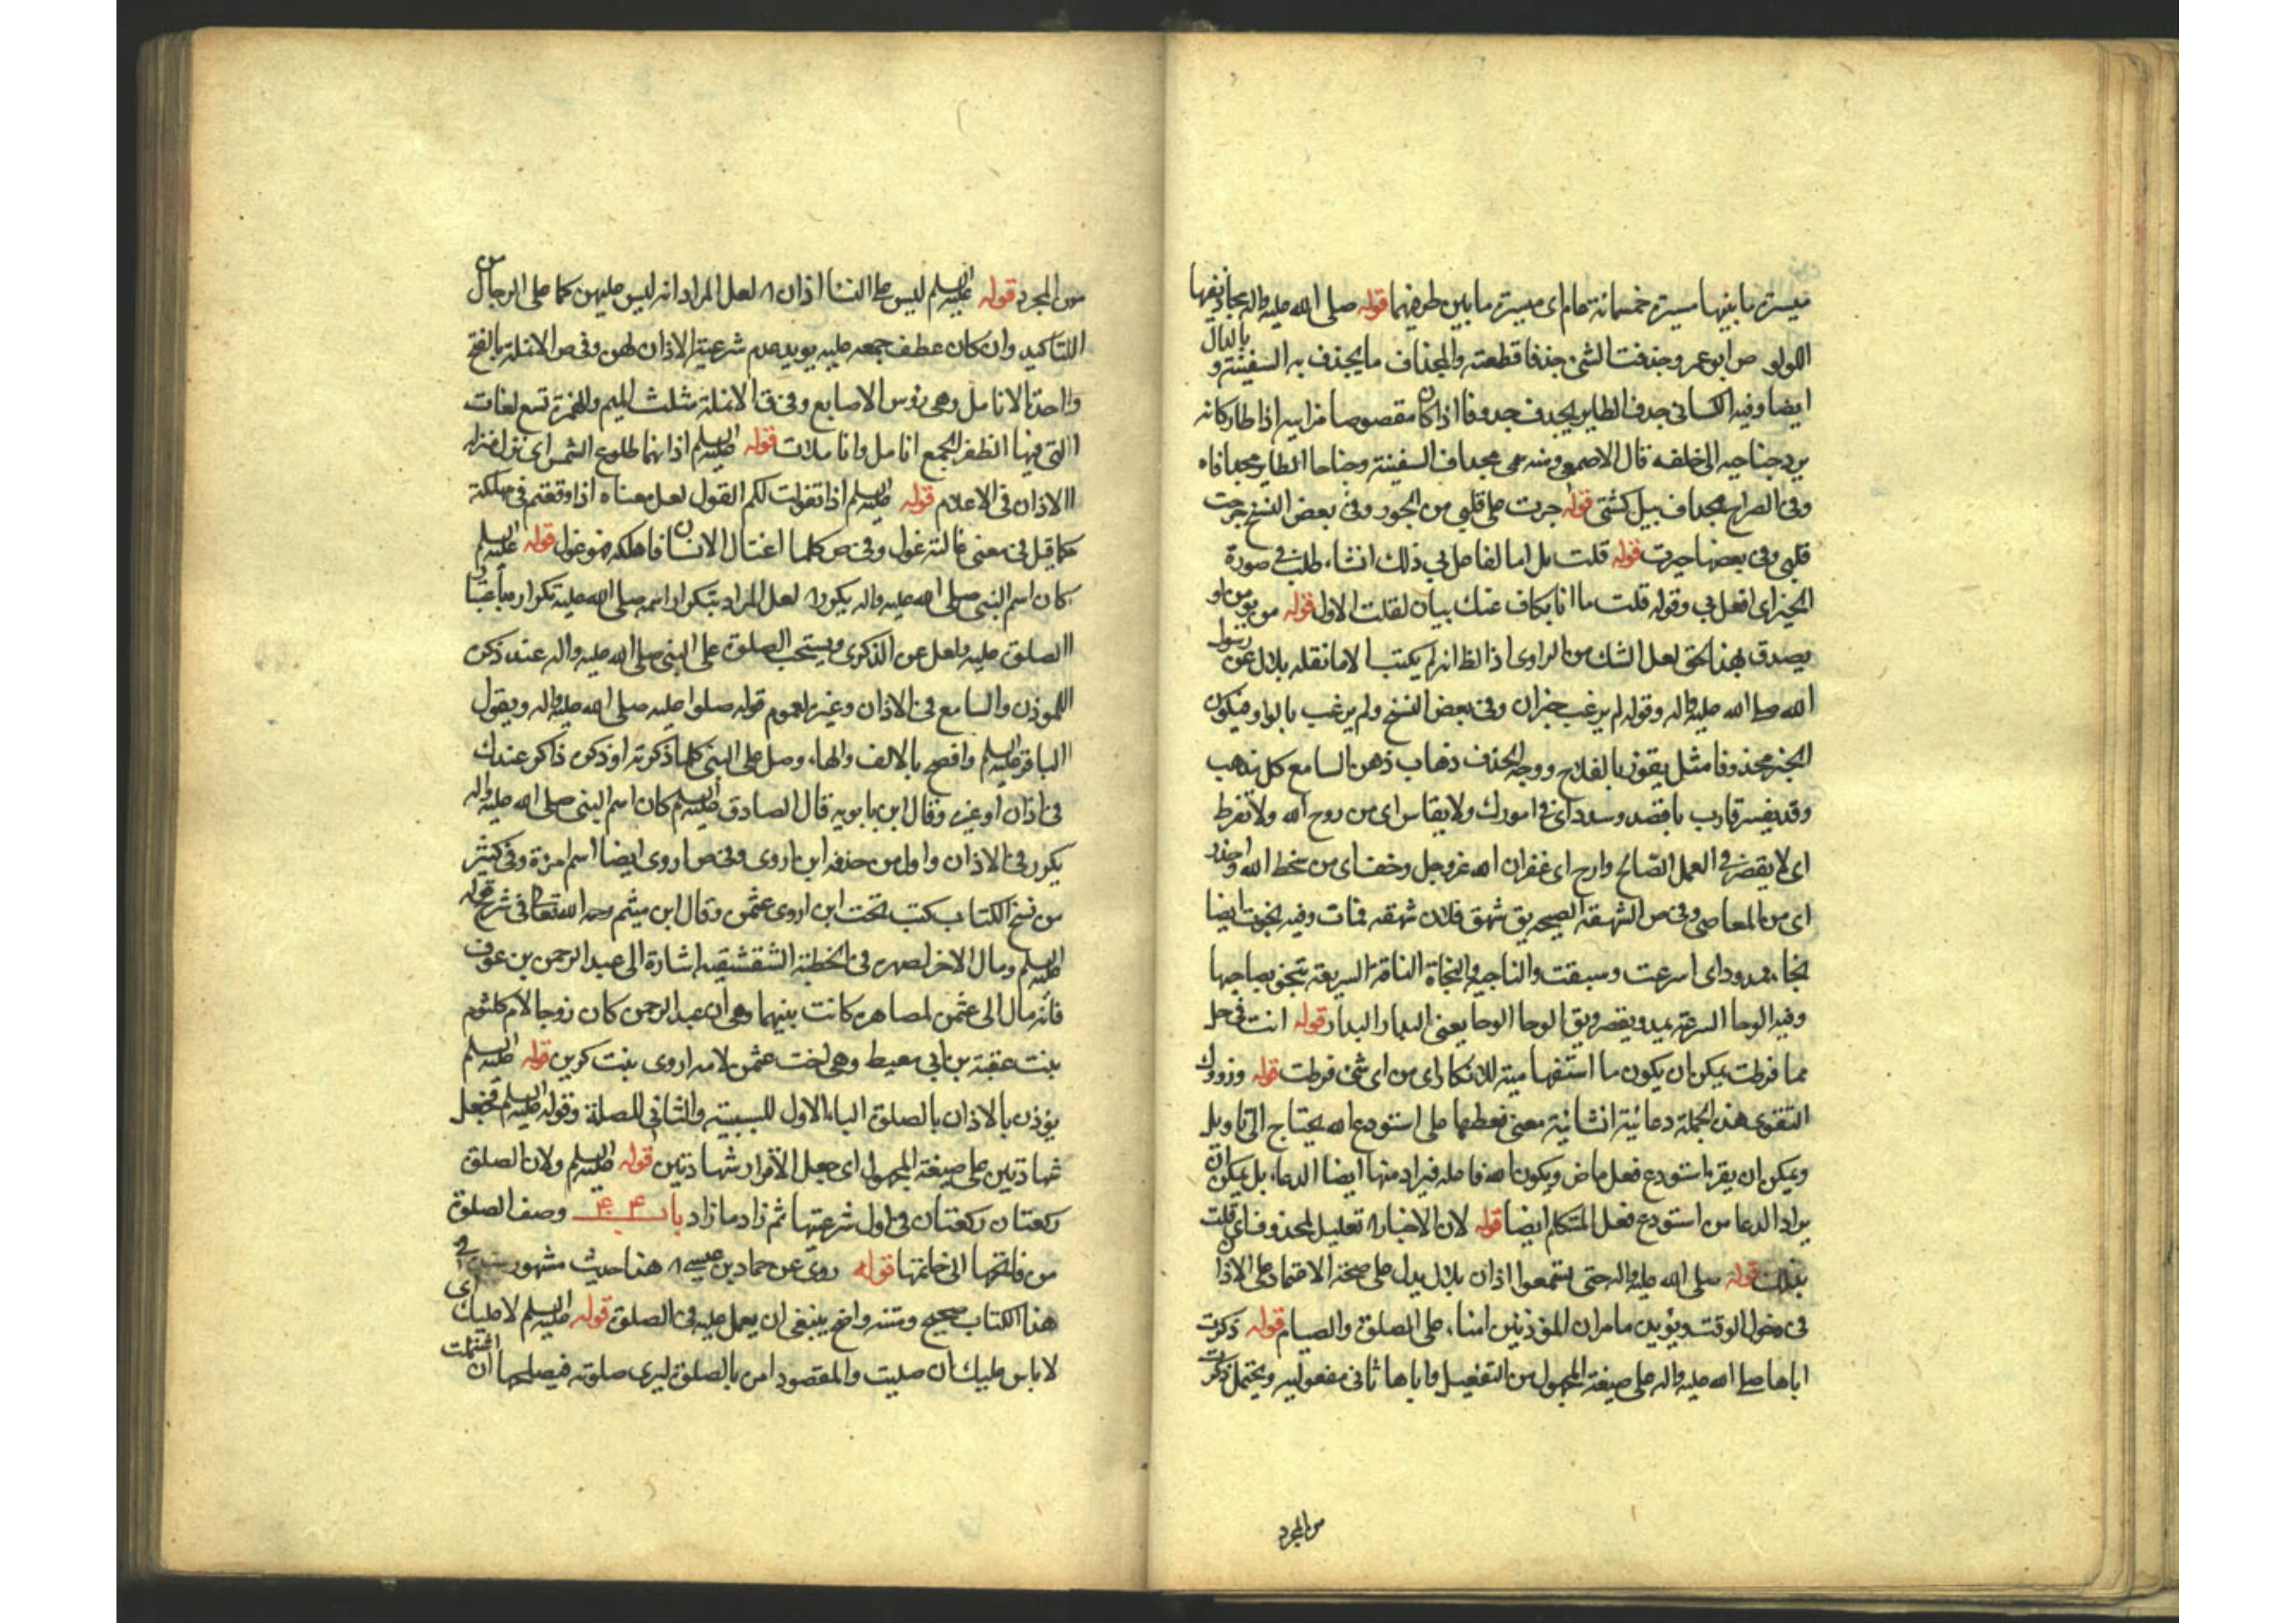 مسيرة ما بينها مسيرة خمسمائة عام اى مسيرة ما بين طرفيهما قوله صلى الله عليه واله مجاذيفها
اللولو ص ابو عمر وجذفت الشئ جذفا قطعته والمجذاف ما يجذف به السفينة و بالدال
ايضا وفيه الكسائى جدف الطاير يجدف جدوفا اذا كان مقصوصا فرايته اذا طار كانه
يرد جناحيه الى خلفه قال الاصمعى ومنه سمى مجداف السفينة وجناحا الطاير مجدافاه
وفى الصراح مجداف بيل كشتى قوله جرت على قلبى من الجور وفى بعض النسخ جرت
قلبى وفى بعضها حيرت قوله قلت بل اما لفاصل بى ذلك انشاء طلب فى صورة
الخبر اى افعل بى وقوله قلت ما انا بكاف عنك بيان لقلت الاول قوله من يؤمن او
يصدق بهذا الحق لعل الشك من الراوى اذ الظ انه لم يكتب الا ما نقله بلال عن رسول
الله صلى الله عليه واله وقوله لم يرغب خبر ان وفى بعض النسخ ولم يرغب بالواو فيكون
الخبر محذوفا مثل يفوز بالفلاح ووجه الحذف ذهاب ذهن السامع كل مذهب
وقد يفسر قارب باقصد وسدد اى فى امورك ولا يقاس اى من روح الله ولا تفرط
اى لا يقصر فى العمل الصالح وارج اى غفران الله عز وجل وخف اى من سخط الله واحذر
اى من المعاصى وفى ص الشهقة الصيحه يق شهق فلان شهقه فمات وفيه نجوت ايضا
نجاء ممدود اى اسرعت وسبقت والناجيه والنجاة الناقة السريعة تنجو بصاحبها
وفيه الوحا السرعة يمد ويقصر ويق الوحا الوحا يعنى البدار البدار قوله انت فى حل
مما فرطت يمكن ان يكون ما استفهامية للانكار اى من اى شئ فرطت قوله وزودك
التقوى هذه الجملة دعائية انشائية معنى فعطفها على استودع الله يحتاج الى تاويل
ويمكن ان يقرء استودع فعل ماض ويكون الله فاعله فيراد منها ايضا الدعاء بل يمكن ان
يراد الدعا من استودع فعل المتكلم ايضا قوله لان الاخبار الخ تعليل لمحذوف اى قلت
بذلك قوله صلى الله عليه واله حتى تسمعوا اذان بلال يدل على صحة الاعتماد على الاذان
فى دخول الوقت ويؤيده ما مر ان المؤذنين امناء على الصلوة والصيام قوله ذكرت
اباها صلى الله عليه واله على صيغة المجهول من التفعيل واباها ثانى مفعوليه ويحتمل ذكرت
من المجرد
من المجرد قوله عليه السلم ليس على النسا اذان الخ لعل المراد انه ليس عليهن كما على الرجال من
التاكيد وان كان عطف جمعه عليه يويد عدم شرعية الاذان لهن وفى ص الانملة بالفتح
واحدة الانامل وهى رؤس الاصابع وفى ق الانملة مثلث الميم والهمزة تسع لغات
التى فيها الظفر الجمع انامل وانا ملات قوله عليه السلم اذانهما طلوع الشمس اى بمنزلة
الاذان فى الاعلام قوله عليه السلم اذا تغولت لكم الغول لعل معناه اذا وقعتم فى مهلكة
كما قيل فى معنى غالته غول وفى ص كلما اغتال الانسان فاهلكه فهو غول قوله عليه السلم
كان اسم النبى صلى الله عليه واله يكرر الخ لعل المراد بتكرار اسمه صلى الله عليه تكراره باعتبار
الصلوة عليه ولعل عن الذكرى ويستحب الصلوة على النبى صلى الله عليه واله عند ذكره
للموذن والسامع فى الاذان وغيره لعموم قوله صلوا عليه صلى الله عليه واله ويقول
الباقر عليه السلم وافصح بالالف والهاء وصل على النبى كلما ذكرته او ذكره ذاكر عندك
فى اذان او غيره وقال ابن بابويه قال الصادق عليه السلم كان اسم النبى صلى الله عليه واله
يكرر فى الاذان واول من حذفه ابن اروى وفى ص اروى ايضا اسم امرءة وفى كثير
من نسخ الكتاب كتب تحت ابن اروى عثمن وقال ابن ميثم رحمه الله تعالى فى شرح قوله
عليه السلم ومال الاخر لصهره فى الخطبة الشقشقيه اشارة الى عبد الرحمن بن عوف
فانه مال الى عثمن لمصاهرة كانت بينهما وهى ان عبد الرحمن كان زوجا لام كلثوم
بنت عقبة بن ابى معيط وهى اخت عثمن لامه اروى بنت كريز قوله عليه السلم
يؤذن بالاذان بالصلوة الباء الاول للسببية والثانى للصلة وقوله عليه السلم فجعل
شهادتين على صيغة المجهول اى جعل الاقرار شهادتين قوله عليه السلم ولان الصلوة
ركعتان ركعتان فى اول شرعيتها ثم زاد ما زاد باب وصف الصلوة
من فاتحتها الى خاتمتها قوله روى عن حماد بن عيسى الخ هذا حديث مشهور فى
هذا الكتاب صحيح ومتنه واضح ينبغى ان يعمل عليه فى الصلوة قوله عليه السلم لا عليك اى
لا باس عليك ان صليت والمقصود امره بالصلوة ليرى صلوته فيصلحها ان اختلت